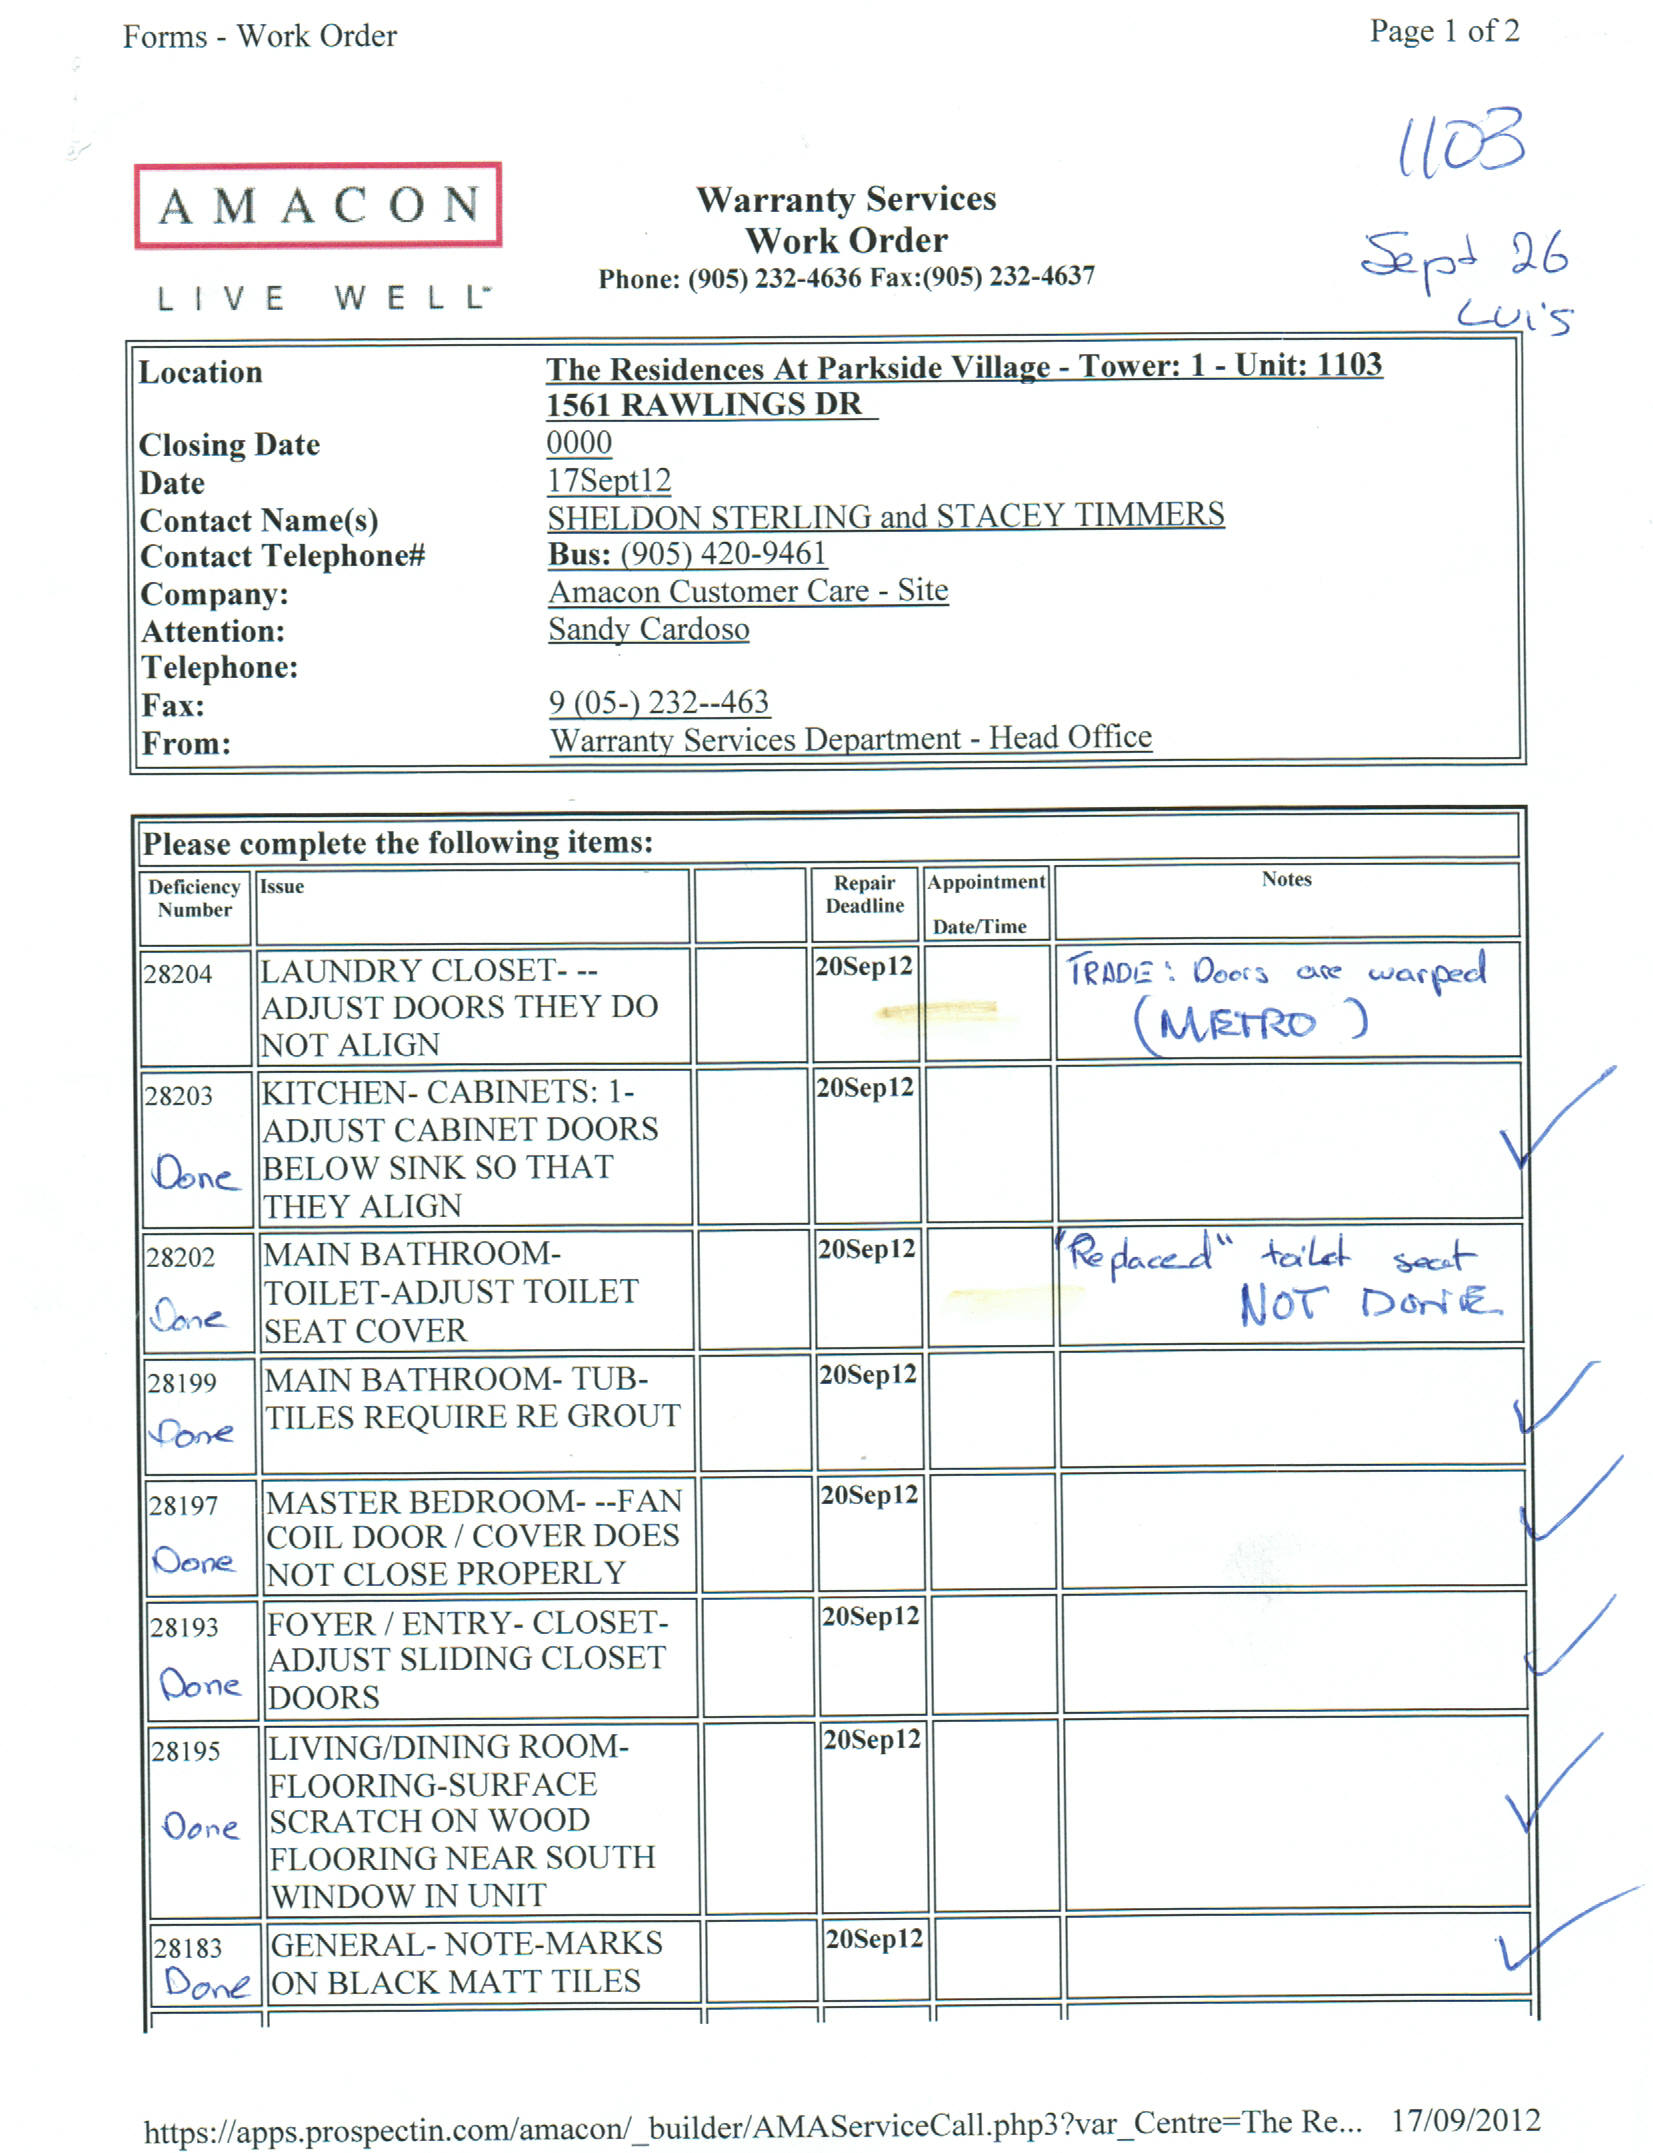 Forms - Work Order
Page 1 of 2
1103
AMACON
LIVE WELL
Warranty Services
Work Order
Phone: (905) 232-4636 Fax:(905) 232-4637
Sept 26
Luis
Location The Residences At Parkside Village - Tower: 1 - Unit: 1103
1561 RAWLINGS DR
Closing Date 0000
Date 17Sept12
Contact Name(s) SHELDON STERLING and STACEY TIMMERS
Contact Telephone# Bus: (905) 420-9461
Company: Amacon Customer Care - Site
Attention: Sandy Cardoso
Telephone:
Fax: 9 (05-) 232--463
From: Warranty Services Department - Head Office
Please complete the following items:
Deficiency Number Issue Repair Deadline Appointment Date/Time Notes
28204 LAUNDRY CLOSET- -- 20Sep12 TRADE: Doors are warped
ADJUST DOORS THEY DO (METRO)
NOT ALIGN
28203 KITCHEN- CABINETS: 1- 20Sep12 ✓
ADJUST CABINET DOORS
Done BELOW SINK SO THAT
THEY ALIGN
28202 MAIN BATHROOM- 20Sep12 "Replaced" toilet seat
TOILET-ADJUST TOILET NOT DONE
Done SEAT COVER
28199 MAIN BATHROOM- TUB- 20Sep12 ✓
Done TILES REQUIRE RE GROUT
28197 MASTER BEDROOM- --FAN 20Sep12 ✓
COIL DOOR / COVER DOES
Done NOT CLOSE PROPERLY
28193 FOYER / ENTRY- CLOSET- 20Sep12 ✓
ADJUST SLIDING CLOSET
Done DOORS
28195 LIVING/DINING ROOM- 20Sep12 ✓
FLOORING-SURFACE
Done SCRATCH ON WOOD
FLOORING NEAR SOUTH
WINDOW IN UNIT
28183 GENERAL- NOTE-MARKS 20Sep12 ✓
Done ON BLACK MATT TILES
https://apps.prospectin.com/amacon/_builder/AMAServiceCall.php3?var_Centre=The Re... 17/09/2012